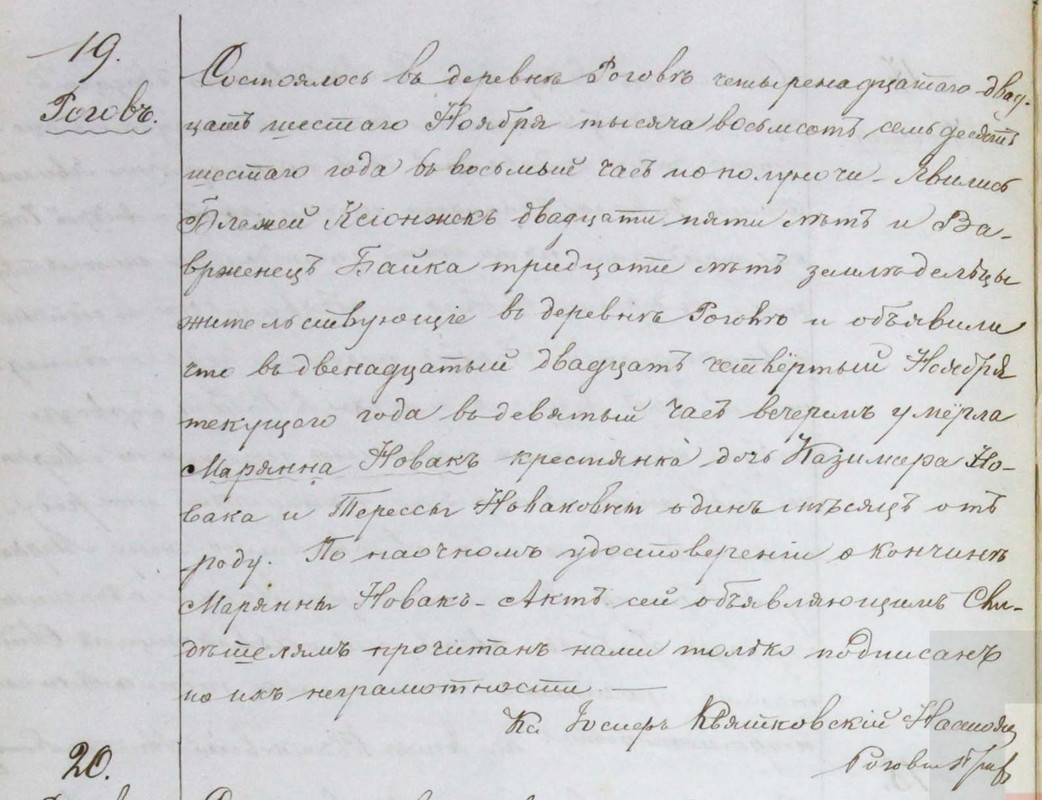 19.
Роговъ.
Состоялось въ деревнѣ Роговѣ четыренадцатаго двад-
цать шестаго Ноября тысяча восьмсотъ семьдесять
шестаго года въ восьмый часъ по полуночи – Явились
Блажей Ксіонжекъ двадцати пяти лѣтъ и Ва-
врженецъ Байка тридцати лѣтъ земледѣльцы
жительствующіе въ деревнѣ Роговѣ и объявили
что въ двенадцатый двадцать четвёртый Ноября
текущаго года въ девятый часъ вечеромъ умёрла
Марянна Новакъ крестянка дочь Казимера Но-
вака и Терессы Новаковѣ одинъ мѣсяцъ отъ
роду. По наочномъ удостовереніи о кончинѣ
Марянны Новакъ – Актъ сей объявляющимъ Сви-
дѣтелямъ прочитанъ нами только подписанъ
по ихъ неграмотности —
Кс. Квятковскій
20.